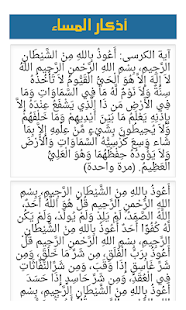 أذكار المساء
آية الكرسى: أَعُوذُ بِاللهِ مِنْ الشَّيْطَانِ
الرَّجِيمِ، بِسْمِ اللهِ الرَّحْمنِ الرَّحِيمِ اللّهُ
لاَ إِلَهَ إِلاَّ هُوَ الْحَيُّ الْقَيُّومُ لاَ تَأْخُذُهُ
سِنَةٌ وَلاَ نَوْمٌ لَّهُ مَا فِي السَّمَاوَاتِ وَمَا
فِي الأَرْضِ مَن ذَا الَّذِي يَشْفَعُ عِنْدَهُ إِلاَّ
بِإِذْنِهِ يَعْلَمُ مَا بَيْنَ أَيْدِيهِمْ وَمَا خَلْفَهُمْ
وَلاَ يُحِيطُونَ بِشَيْءٍ مِّنْ عِلْمِهِ إِلاَّ بِمَا
شَاء وَسِعَ كُرْسِيُّهُ السَّمَاوَاتِ وَالأَرْضَ
وَلاَ يَؤُودُهُ حِفْظُهُمَا وَهُوَ الْعَلِيُّ
الْعَظِيمُ. (مرة واحدة)
أَعُوذُ بِاللهِ مِنْ الشَّيْطَانِ الرَّجِيمِ، بِسْمِ
اللهِ الرَّحْمنِ الرَّحِيمِ قُلْ هُوَ اللَّهُ أَحَدٌ،
اللَّهُ الصَّمَدُ، لَمْ يَلِدْ وَلَمْ يُولَدْ، وَلَمْ يَكُن
لَّهُ كُفُوًا أَحَدٌ أَعُوذُ بِاللهِ مِنْ الشَّيْطَانِ
الرَّجِيمِ، بِسْمِ اللهِ الرَّحْمنِ الرَّحِيمِ قُلْ
أَعُوذُ بِرَبِّ الْفَلَقِ، مِن شَرِّ مَا خَلَقَ، وَمِن
شَرِّ غَاسِقٍ إِذَا وَقَبَ، وَمِن شَرِّ النَّفَّاثَاتِ
فِي الْعُقَدِ، وَمِن شَرِّ حَاسِدٍ إِذَا حَسَدَ